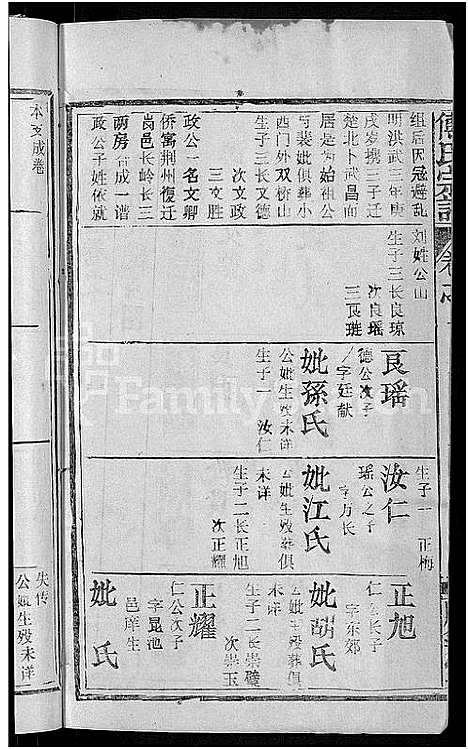 傅氏宗譜
卷
组后因寇避乱
明洪武三年庚
戌岁携三子迁
楚北卜武昌南
居是为始祖公
与裴妣俱葬小
西门外双桥山
生子三长文德
次文政
三文胜
政公一名文卿
侨寓荆州復迁
岗邑长岭长三
两房合成一谱
政公子姓依就
本支成卷
刘姓公山
生子三长良琼
次良瑶
三良琏
良瑶
德公次子
字廷献
妣孫氏
公妣生殁未详
生子一 汝仁
汝仁
瑶公之子
字万长
妣江氏
公妣生殁葬俱
未详
生子二长正旭
次正耀
生子一 正梅
正旭
仁公长子
字东郊
妣胡氏
公妣生殁葬俱
未详
生子二长崇璧
次崇玉
正耀
仁公次子
字昆池
邑庠生
妣 氏
公妣生殁未详
失传